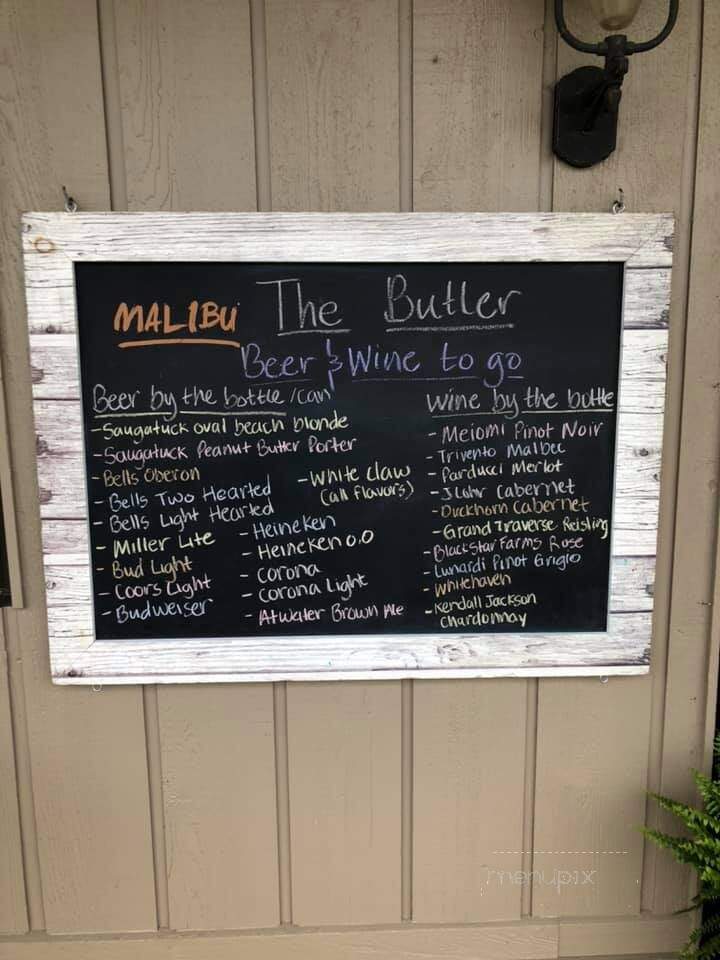 MALIBU The Butler
Beer & Wine to go
Beer by the bottle /can
- Saugatuck oval beach blonde
- Saugatuck Peanut Butter Porter
- Bells Oberon
- Bells Two Hearted
- Bells Light Hearted
- Miller Lite
- Bud Light
- Coors Light
- Budweiser
- White Claw
(all flavors)
- Heineken
- Heineken 0.0
- Corona
- Corona Light
- Atwater Brown Ale
Wine by the bottle
- Meiomi Pinot Noir
- Trivento Malbec
- Parducci Merlot
- J Lohr Cabernet
- Duckhorn Cabernet
- Grand Traverse Reisling
- Black Star Farms Rose
- Lunardi Pinot Grigio
- Whitehaven
- Kendall Jackson
Chardonnay
menupix